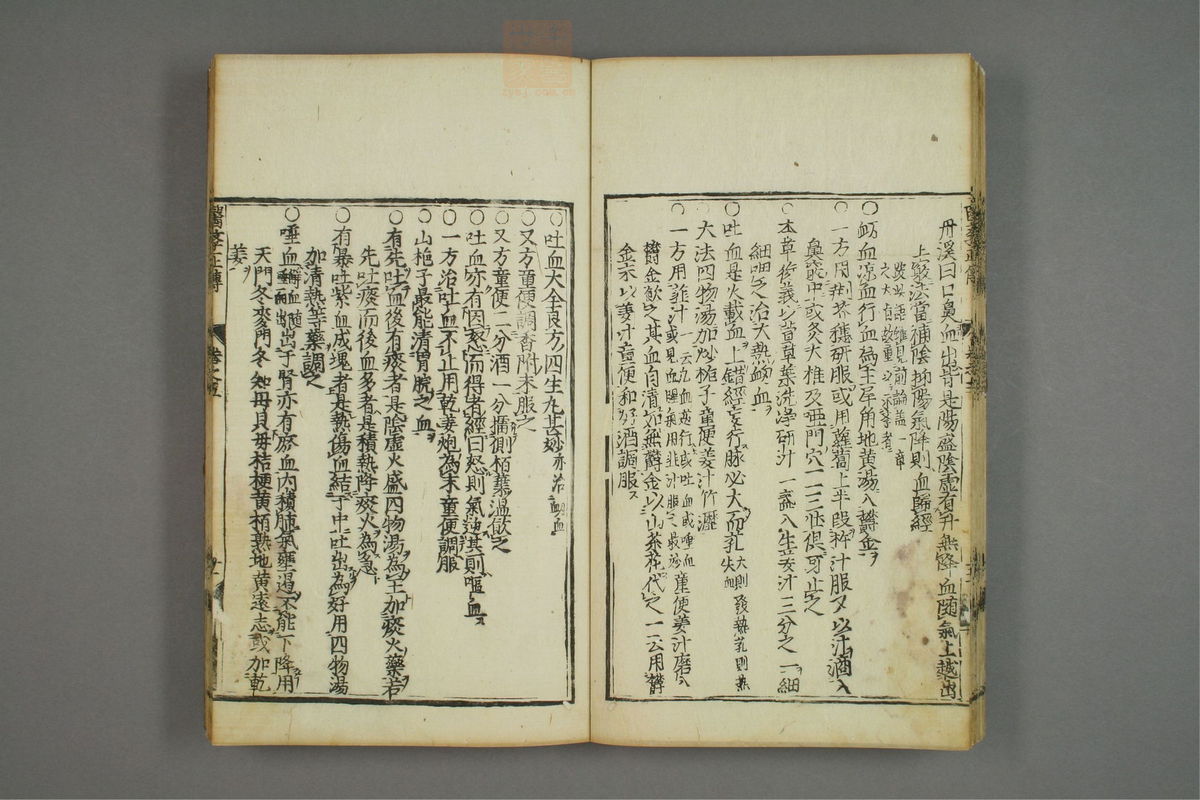 丹溪曰口鼻血出皆是陽盛陰虛有升無降血隨氣上越出
上竅法當補陰抑陽氣降則血歸經
○衂血凉血行血為主犀角地黄湯入欝金
○一方用荆芥穗研服或用蘿蔔上半段搾汁服又以汁滴入
鼻竅中或灸大椎及瘂門穴一二三壮俱可止之
本草衍義以萱草菜洗淨研汁一盞入生姜汁三分之一細
細呷之治大熱衂血
○吐血是火載血上錯經妄行脉必大而芤大則發熱芤則為失血
大法四物湯加炒梔子童便姜汁竹瀝
○一方用韭汁童便姜汁磨入
欝金飲之其血自清如無欝金以山茶花代之一云用欝
金末以姜汁童便和好酒調服
○吐血大全良方四生丸甚妙亦治衂血
○又方童便調香附末服之
○又方童便二分酒一分擂側栢葉温飲之
○吐血亦有因怒而得者經曰怒則氣逆甚則嘔血
○一方治吐血不止用乾姜炮為末童便調服
○山梔子最能清胃脘之血
○有先吐血後有痰者是陰虛火盛四物湯為主加痰火藥若
先吐痰而後血多者是積熱降痰火為急
○有暴吐紫血成塊者是熱傷血結于中吐出為好用四物湯
加清熱等藥調之
○唾血出于腎亦有瘀血内積肺氣壅遏不能下降用
天門冬麥門冬知母貝母桔梗黄栢熟地黄遠志或加乾
姜
醫學正傳
卷之五